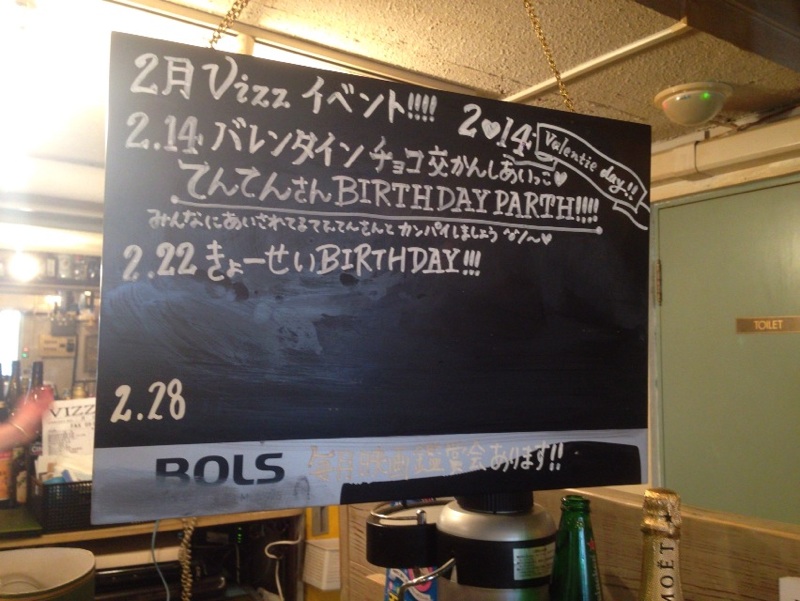 2月 Vizz イベント!!!!
2♥14 Valentie day!!
2.14 バレンタイン チョコ交かんしあいっこ♥
てんてんさん BIRTHDAY PARTH!!!!
みんなにあいされてるてんてんさんと カンパイしましょう
2.22 きょーせい BIRTHDAY!!!
2.28
BOLS 毎月映画鑑賞会あります!!
TOILET
VIZZ
MOËT